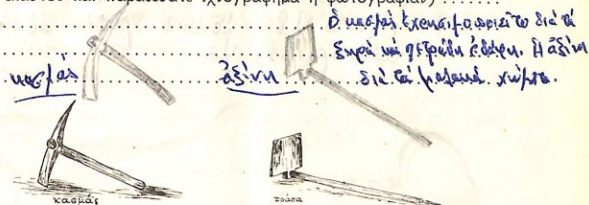 ἑκάστου καὶ παραθέσατε ἰχνογράφημα ἢ φωτογραφίαν) .......
Ὁ κασμᾶς ἐχρησιμοποιεῖτο διὰ τὰ
ξηρὰ καὶ πετρώδη ἐδάφη. Ἡ ἀξίνη
διὰ τὰ μαλακὰ χώματα.
κασμᾶς
ἀξίνη
κασμάς
τσάπα